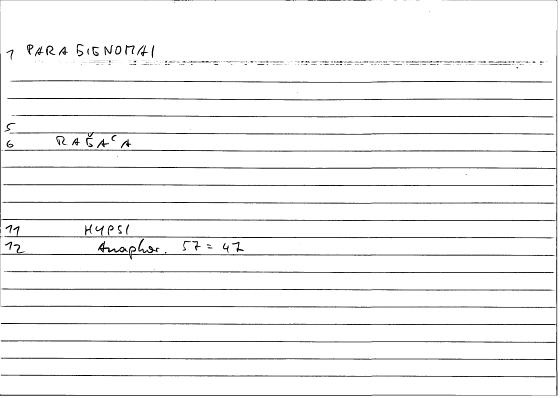 1 PARAGIGNOMAI
5
6 RAGAʿA
11 HYPSI
12 Anaphor. 57 = 47